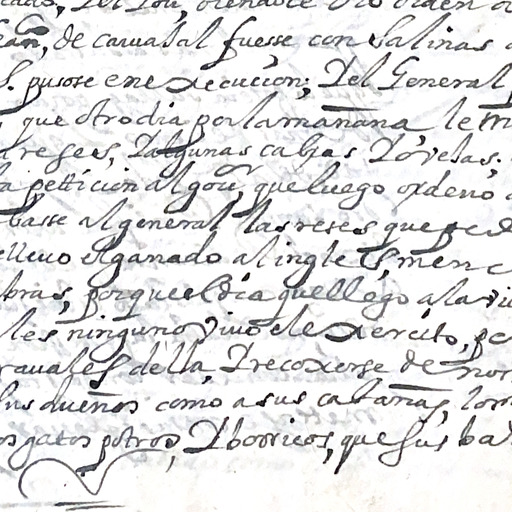 orden
ean, de carual al fuesse con salinas
pusose en execucion; Del General
que otro dia por la mañana, le
reses, Dalgunas cabras Dovelas.
petticion al gou.or, que luego ordeno
basse al general las reses que
lleuo el ganado al ingles, men
bras, porque el dia que llego a la
les ninguno vino el exercito, pe
rauales della, Drecoxerse de nor
sus dueños como a sus cabañas, lom
os gatos potros, Dborricos, que sus ba